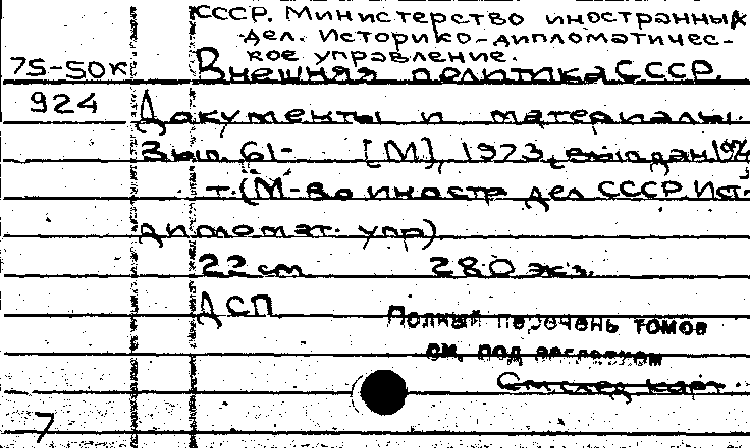 СССР. Министерство иностранных
дел. Историко-дипломатичес-
кое управление.
75-50к Внешняя политика СССР.
924 Документы и материалы.
Вып. 61- [М], 1973,
т. (М-во иностр дел СССР. Ист.
дипломат. упр)
22 см 280 экз.
ДСП
Полный перечень томов
см. под заглавием
См след карт
7